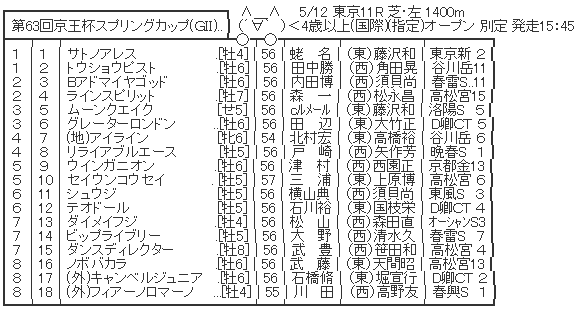 第63回京王杯スプリングカップ(GII).. (´∀｀) 5/12 東京11R 芝・左 1400m
<4歳以上(国際)(指定)オープン 別定 発走15:45
1 1 サトノアレス ..[牡4] 56 蛯 名 (東)藤沢和 東京新 2
1 2 トウショウピスト [牡6] 56 田中勝 (西)角田晃 谷川岳11
2 3 Bアドマイヤゴッド [牡6] 56 内田博 (西)須貝尚 春雷S..11
2 4 ラインスピリット [牡7] 56 森 一 (西)松永昌 高松宮15
3 5 ムーンクエイク [せ5] 56 c/ルメール (東)藤沢和 洛陽S 5
3 6 グレーターロンドン ..[牡6] 56 田 辺 (東)大竹正 D卿CT 5
4 7 (地)アイライン [牝6] 54 北村宏 (東)高橋裕 谷川岳 6
4 8 リライアブルエース [牡5] 56 戸 崎 (西)矢作芳 晩春S 1
5 9 ウインガニオン ..[牡6] 56 津 村 (西)西園正 京都金13
5 10 セイウンコウセイ .[牡5] 57 三 浦 (東)上原博 高松宮 6
6 11 シュウジ [牡5] 56 横山典 (西)須貝尚 東風S 3
6 12 テオドール ..[牡5] 56 石川裕 (東)国枝栄 D卿CT 4
7 13 ダイメイフジ ..[牡4] 56 松 山 (西)森田直 オーシャンS3
7 14 ビップライブリー [牡5] 56 大 野 (西)清水久 春雷S 7
7 15 ダンスディレクター [牡8] 56 武 豊 (西)笹田和 高松宮 4
8 16 ノボバカラ [牡6] 56 武 藤 (東)天間昭 高松宮13
8 17 (外)キャンベルジュニア .[牡6] 56 石橋脩 (東)堀宣行 D卿CT 2
8 18 (外)フィアーノロマーノ ...[牡4] 55 川 田 (西)高野友 春興S 1